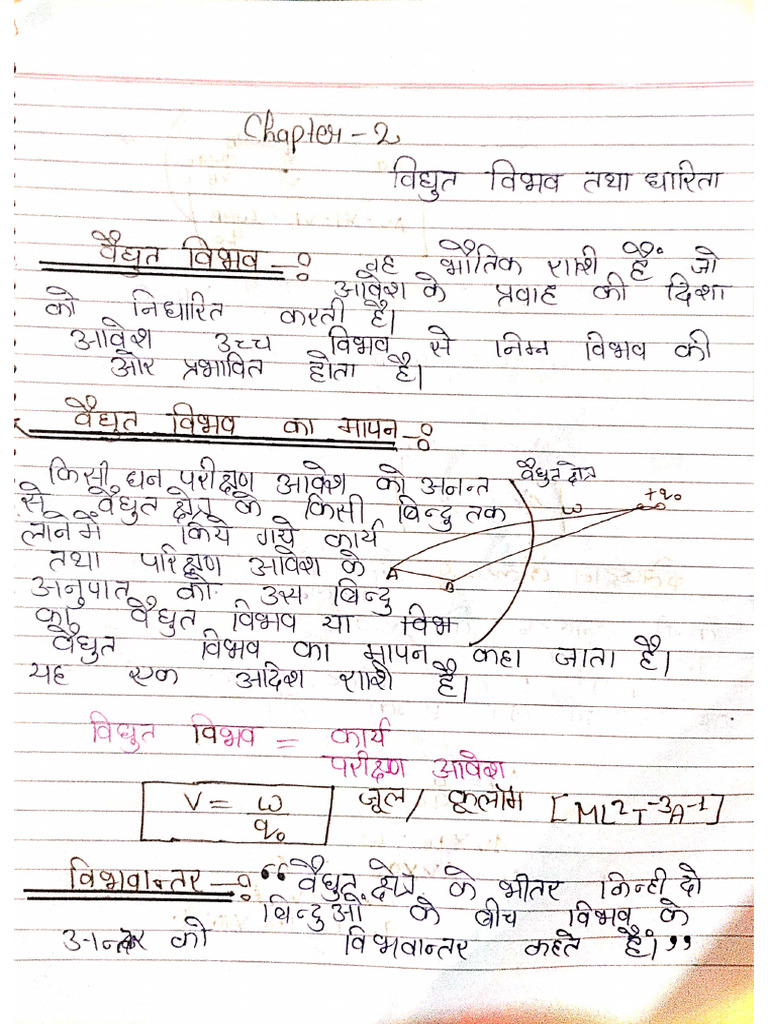 Chapter - 2
विधुत विभव तथा धारिता
वैधुत विभव -: वह भौतिक राशी हैं जो
आवेश के प्रवाह की दिशा
को निर्धारित करती है।
आवेश उच्च विभव से निम्न विभव की
ओर प्रभावित होता है।
वैधुत विभव का मापन -:
किसी धन परीक्षण आवेश को अनन्त
वैधुत क्षेत्र
से वैधुत क्षेत्र के किसी बिन्दु तक
+q₀
W
लाने में किये गये कार्य
तथा परिक्षण आवेश के
A
B
अनुपात को उस बिन्दु
का वैधुत विभव या विभ
वैधुत विभव का मापन कहा जाता है।
यह एक अदिश राशि है।
विधुत विभव = कार्य
परीक्षण आवेश
V = W / q₀ जूल / कूलॉम [ML²T⁻³A⁻¹]
विभवान्तर -: “वैधुत क्षेत्र के भीतर किन्ही दो
बिन्दुओं के बीच विभव के
अन्तर को विभवान्तर कहते हैं।”